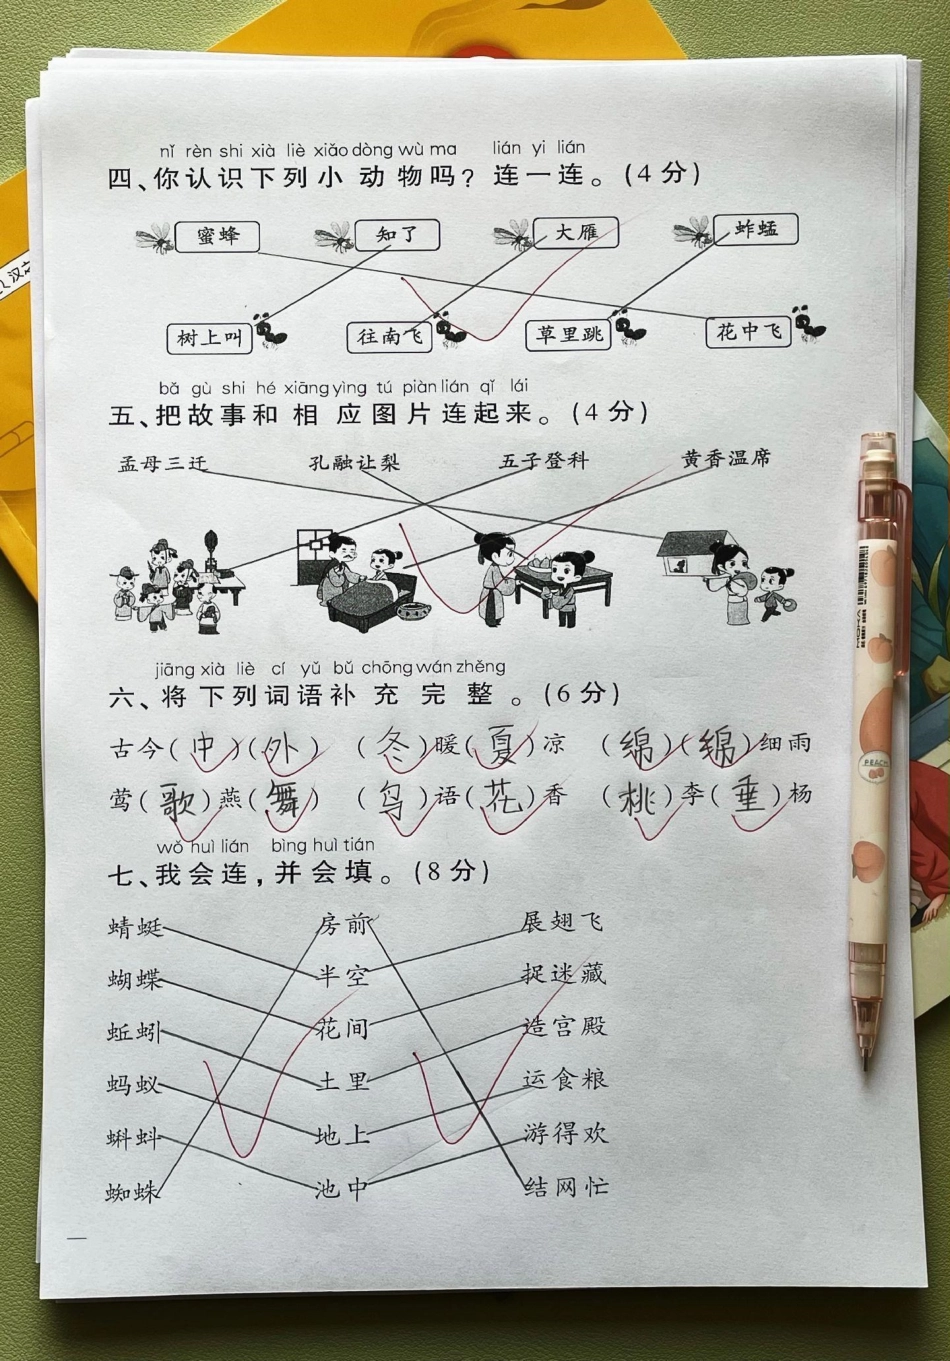 nǐ rèn shi xià liè xiǎo dòng wù ma lián yi lián
四、你认识下列小动物吗？连一连。(4分)
蜜蜂 知了 大雁 蚱蜢
树上叫 往南飞 草里跳 花中飞
bǎ gù shi hé xiāng yìng tú piàn lián qǐ lái
五、把故事和相应图片连起来。(4分)
孟母三迁 孔融让梨 五子登科 黄香温席
jiāng xià liè cí yǔ bǔ chōng wán zhěng
六、将下列词语补充完整。(6分)
古今(中)(外) (冬)暖(夏)凉 (绵)(绵)细雨
莺(歌)燕(舞) (鸟)语(花)香 (桃)李(垂)杨
wǒ huì lián bìng huì tián
七、我会连，并会填。(8分)
蜻蜓 房前 展翅飞
蝴蝶 半空 捉迷藏
蚯蚓 花间 造宫殿
蚂蚁 土里 运食粮
蝌蚪 地上 游得欢
蜘蛛 池中 结网忙
PEACH